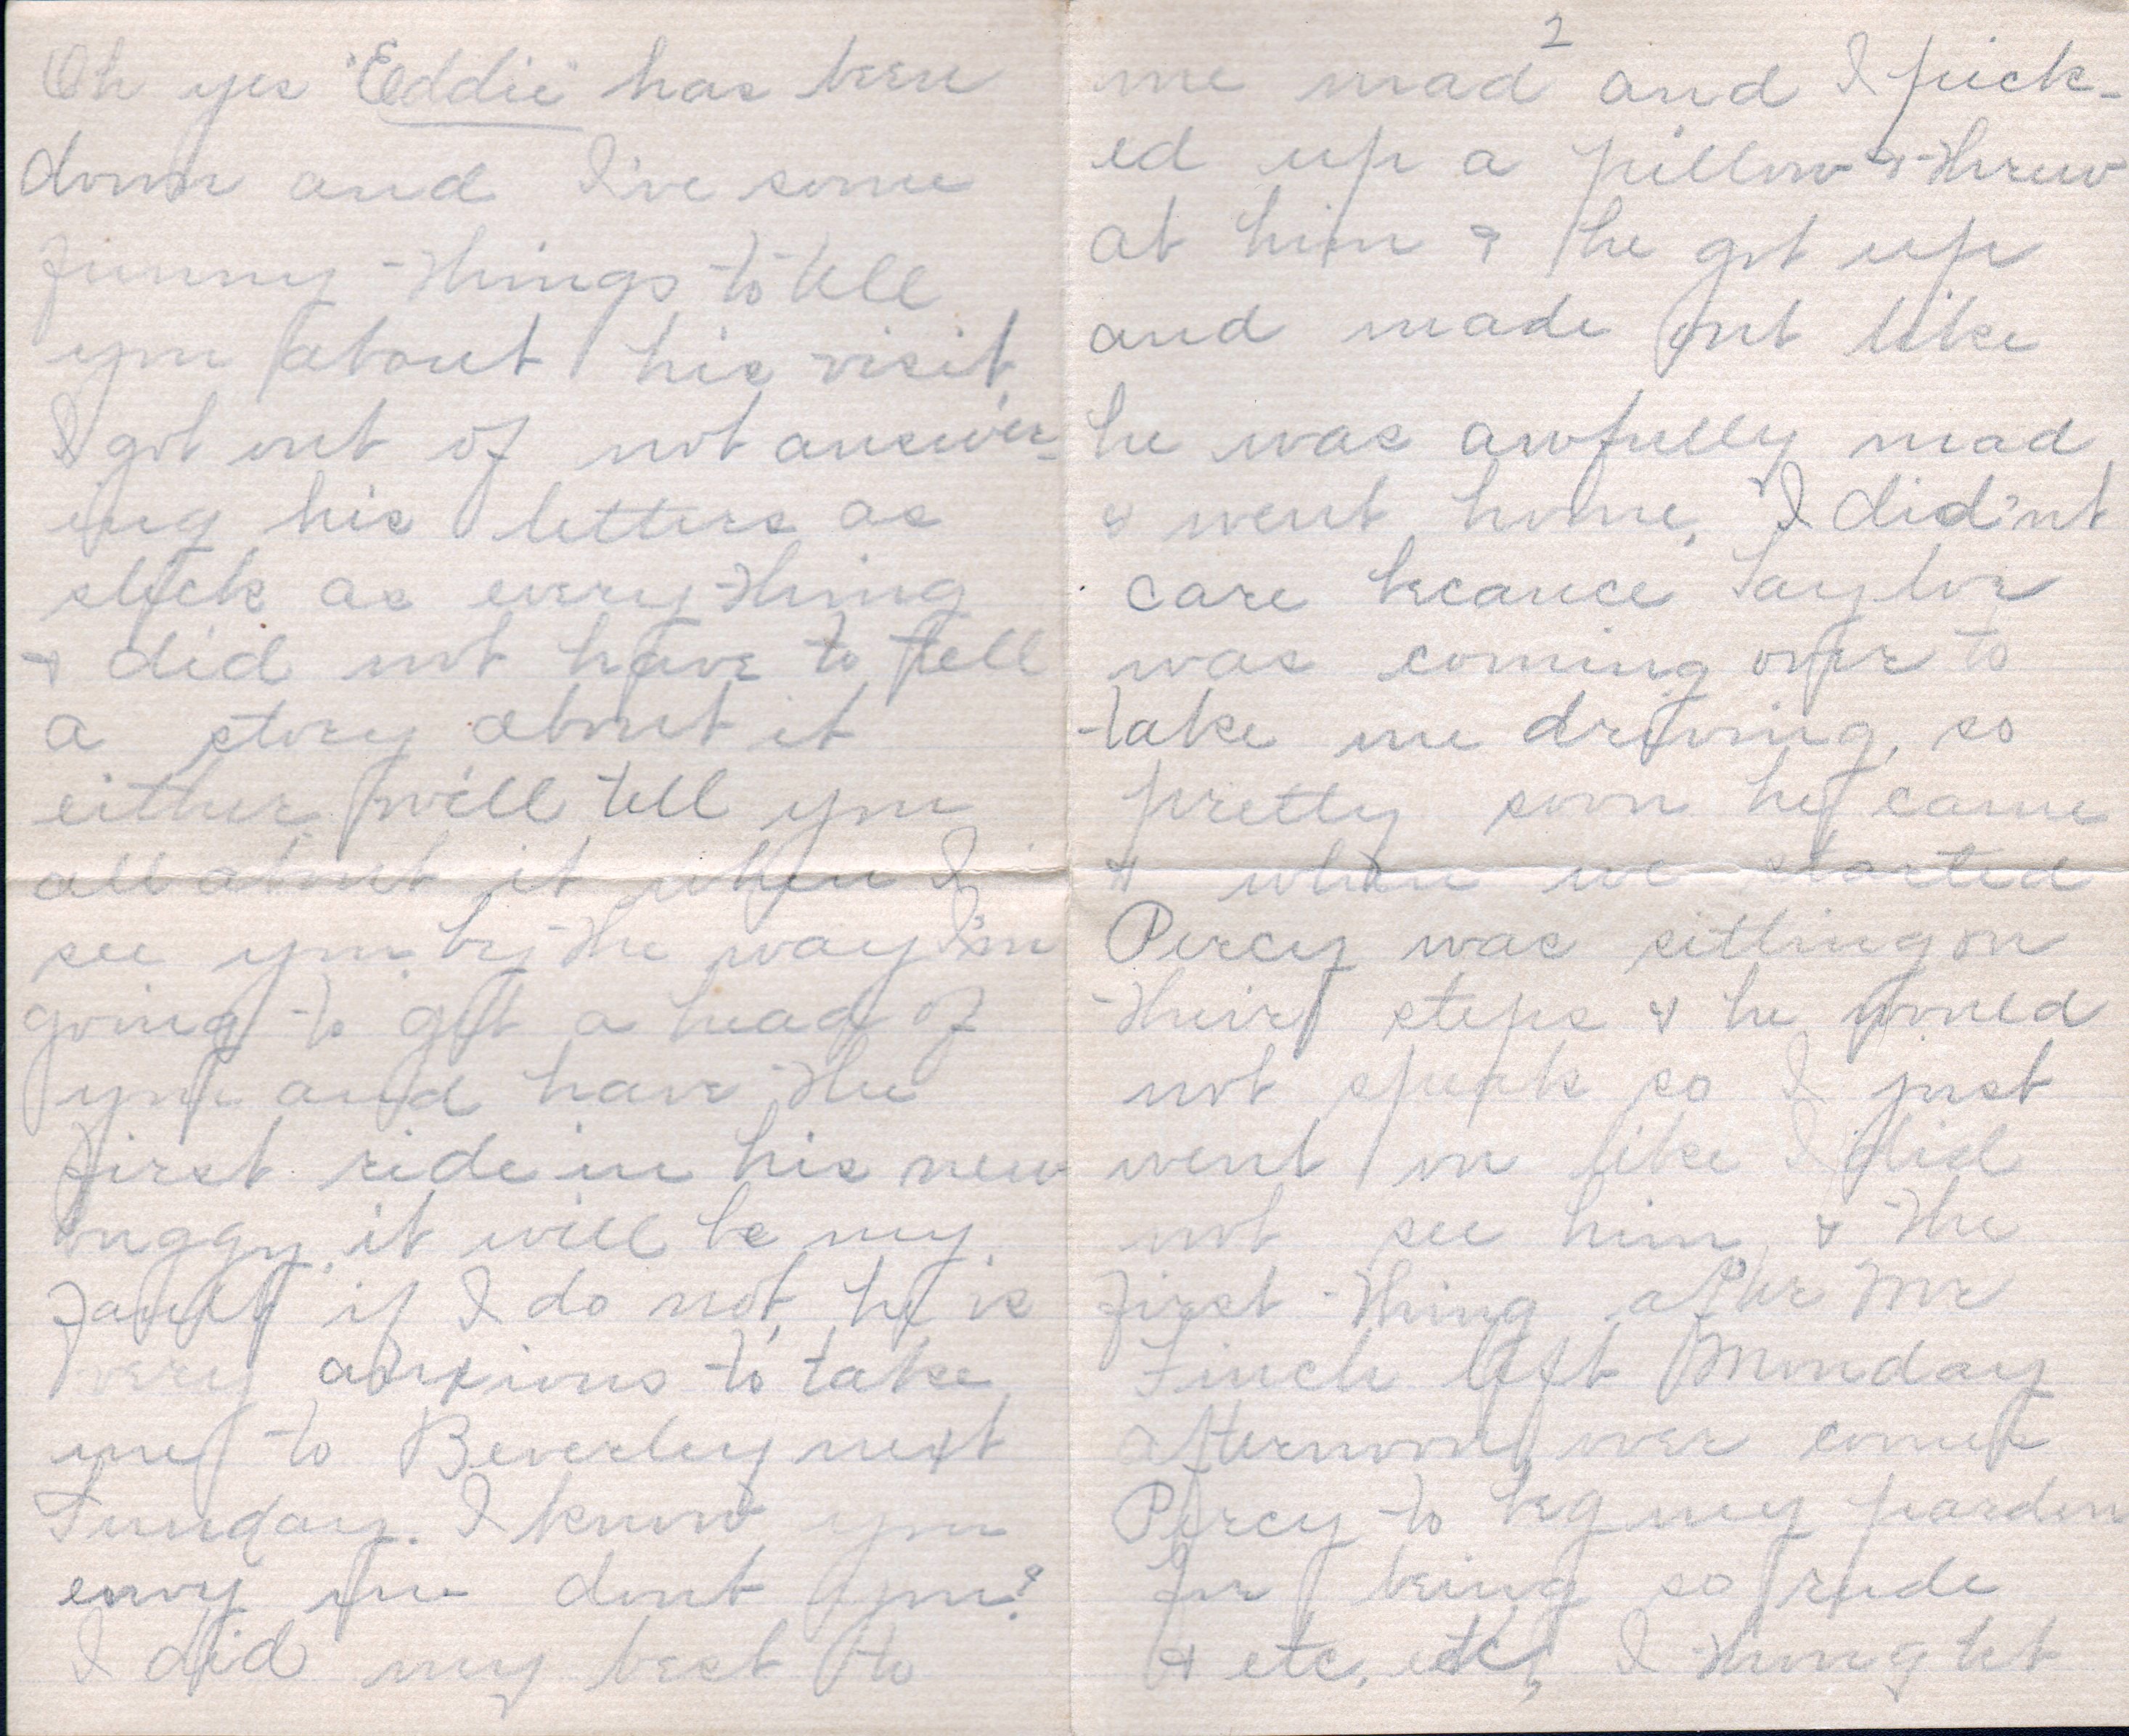 Oh yes "Eddie" has been
down and I've some
funny things to tell
you about his visit
I got out of not answer-
ing his letters as
slick as everything
& did not have to tell
a story about it
either, will tell you
all about it when I
see you. by the way I'm
going to get a head of
you and have the
first ride in his new
buggy, it will be my
fault if I do not, he is
very anxious to take
me to Beverley next
Sunday. I know you
envy me dont you?
I did my best to
2
me mad and I pick-
ed up a pillow & threw
at him & he got up
and made out like
he was awfully mad
& went home, I did'nt
care becauce Taylor
was coming over to
take me driving, so
pretty soon he came
& when we started
Percy was sitting on
their steps & he would
not speak so I just
went on like I did
not see him, & the
first thing after Mr
Finch left Monday
afternoon over comes
Percy to beg my pardon
for being so rude
& etc, etc, I thought